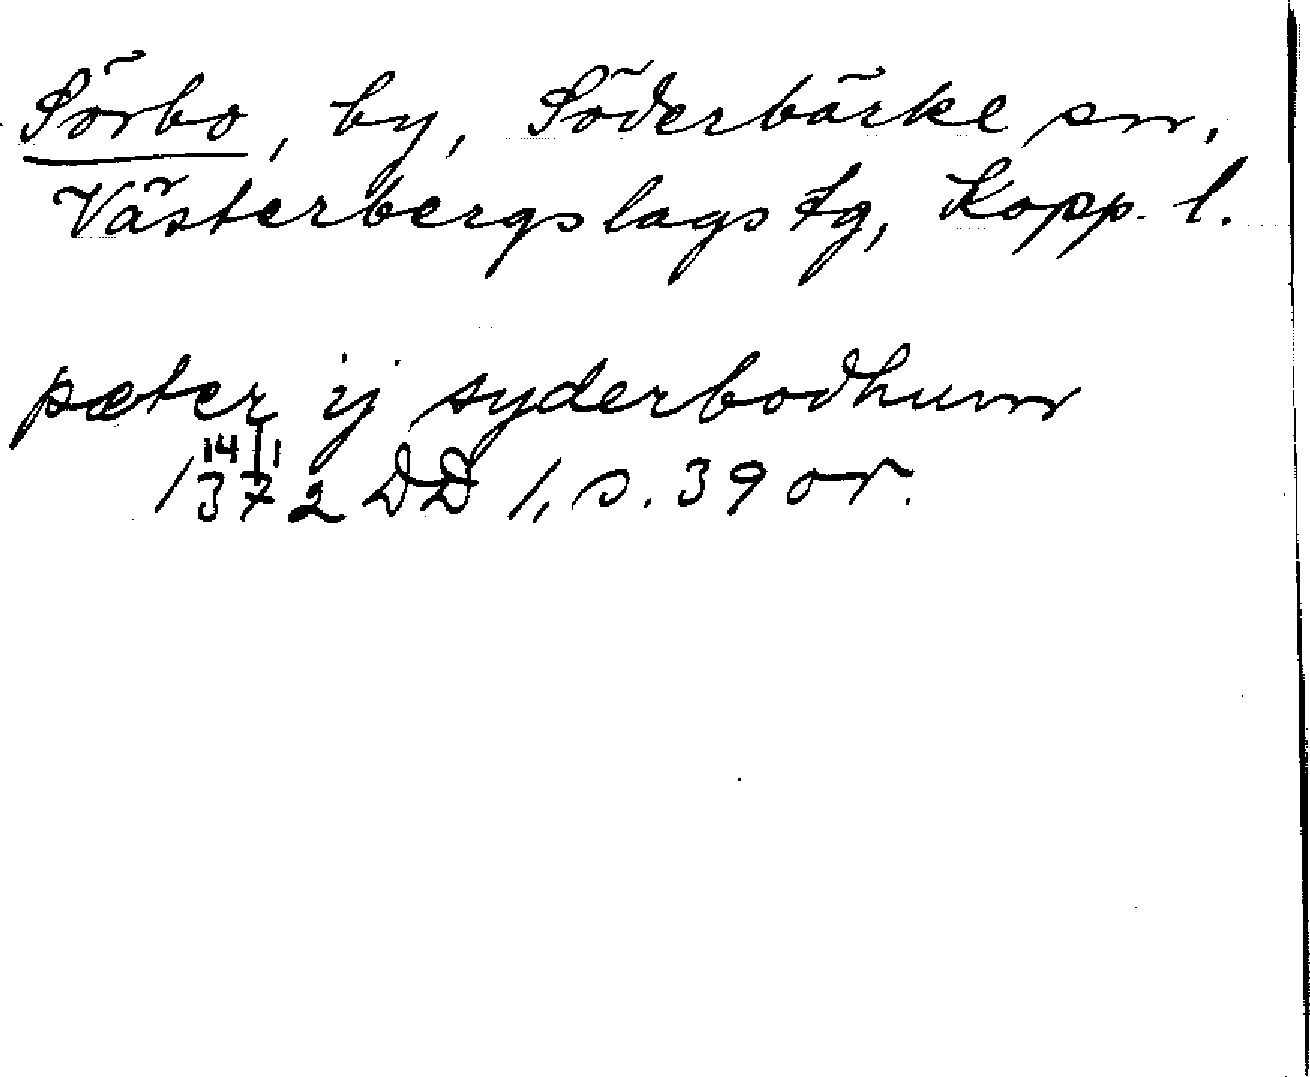 Sörbo, by, Söderbärke sn,
Västerbergslags tg, Kopp. l.
pæter ij syderbodhum
14/1
1372 DD 1, s. 39 or.